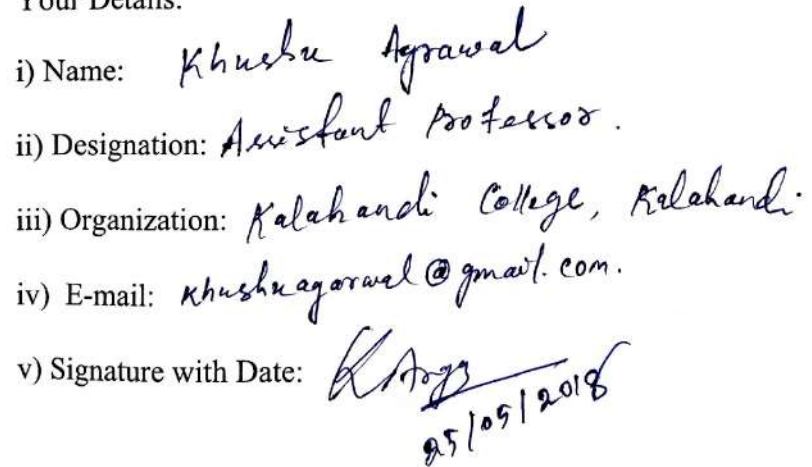 Your Details:
i) Name: Khushu Agrawal
ii) Designation: Assistant Professor.
iii) Organization: Kalahandi College, Kalahandi.
iv) E-mail: khushuagarwal@gmail.com.
v) Signature with Date:
25/05/2018